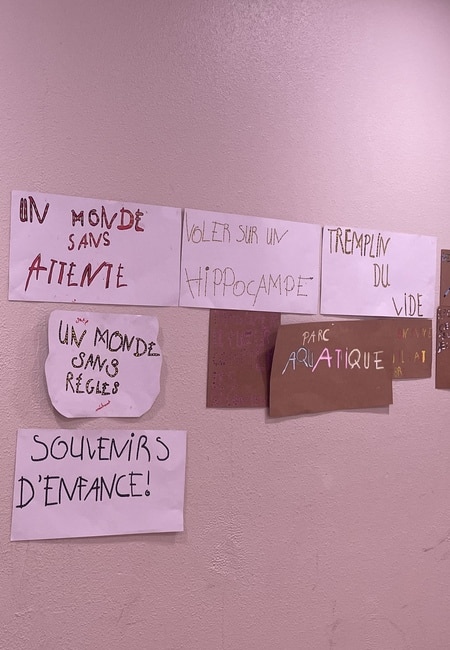 UN MONDE
SANS
ATTENTE
VOLER SUR UN
HIPPOCAMPE
TREMPLIN
DU
VIDE
UN MONDE
SANS
RÉGLES
PARC
AQUATIQUE
SOUVENIRS
D'ENFANCE!